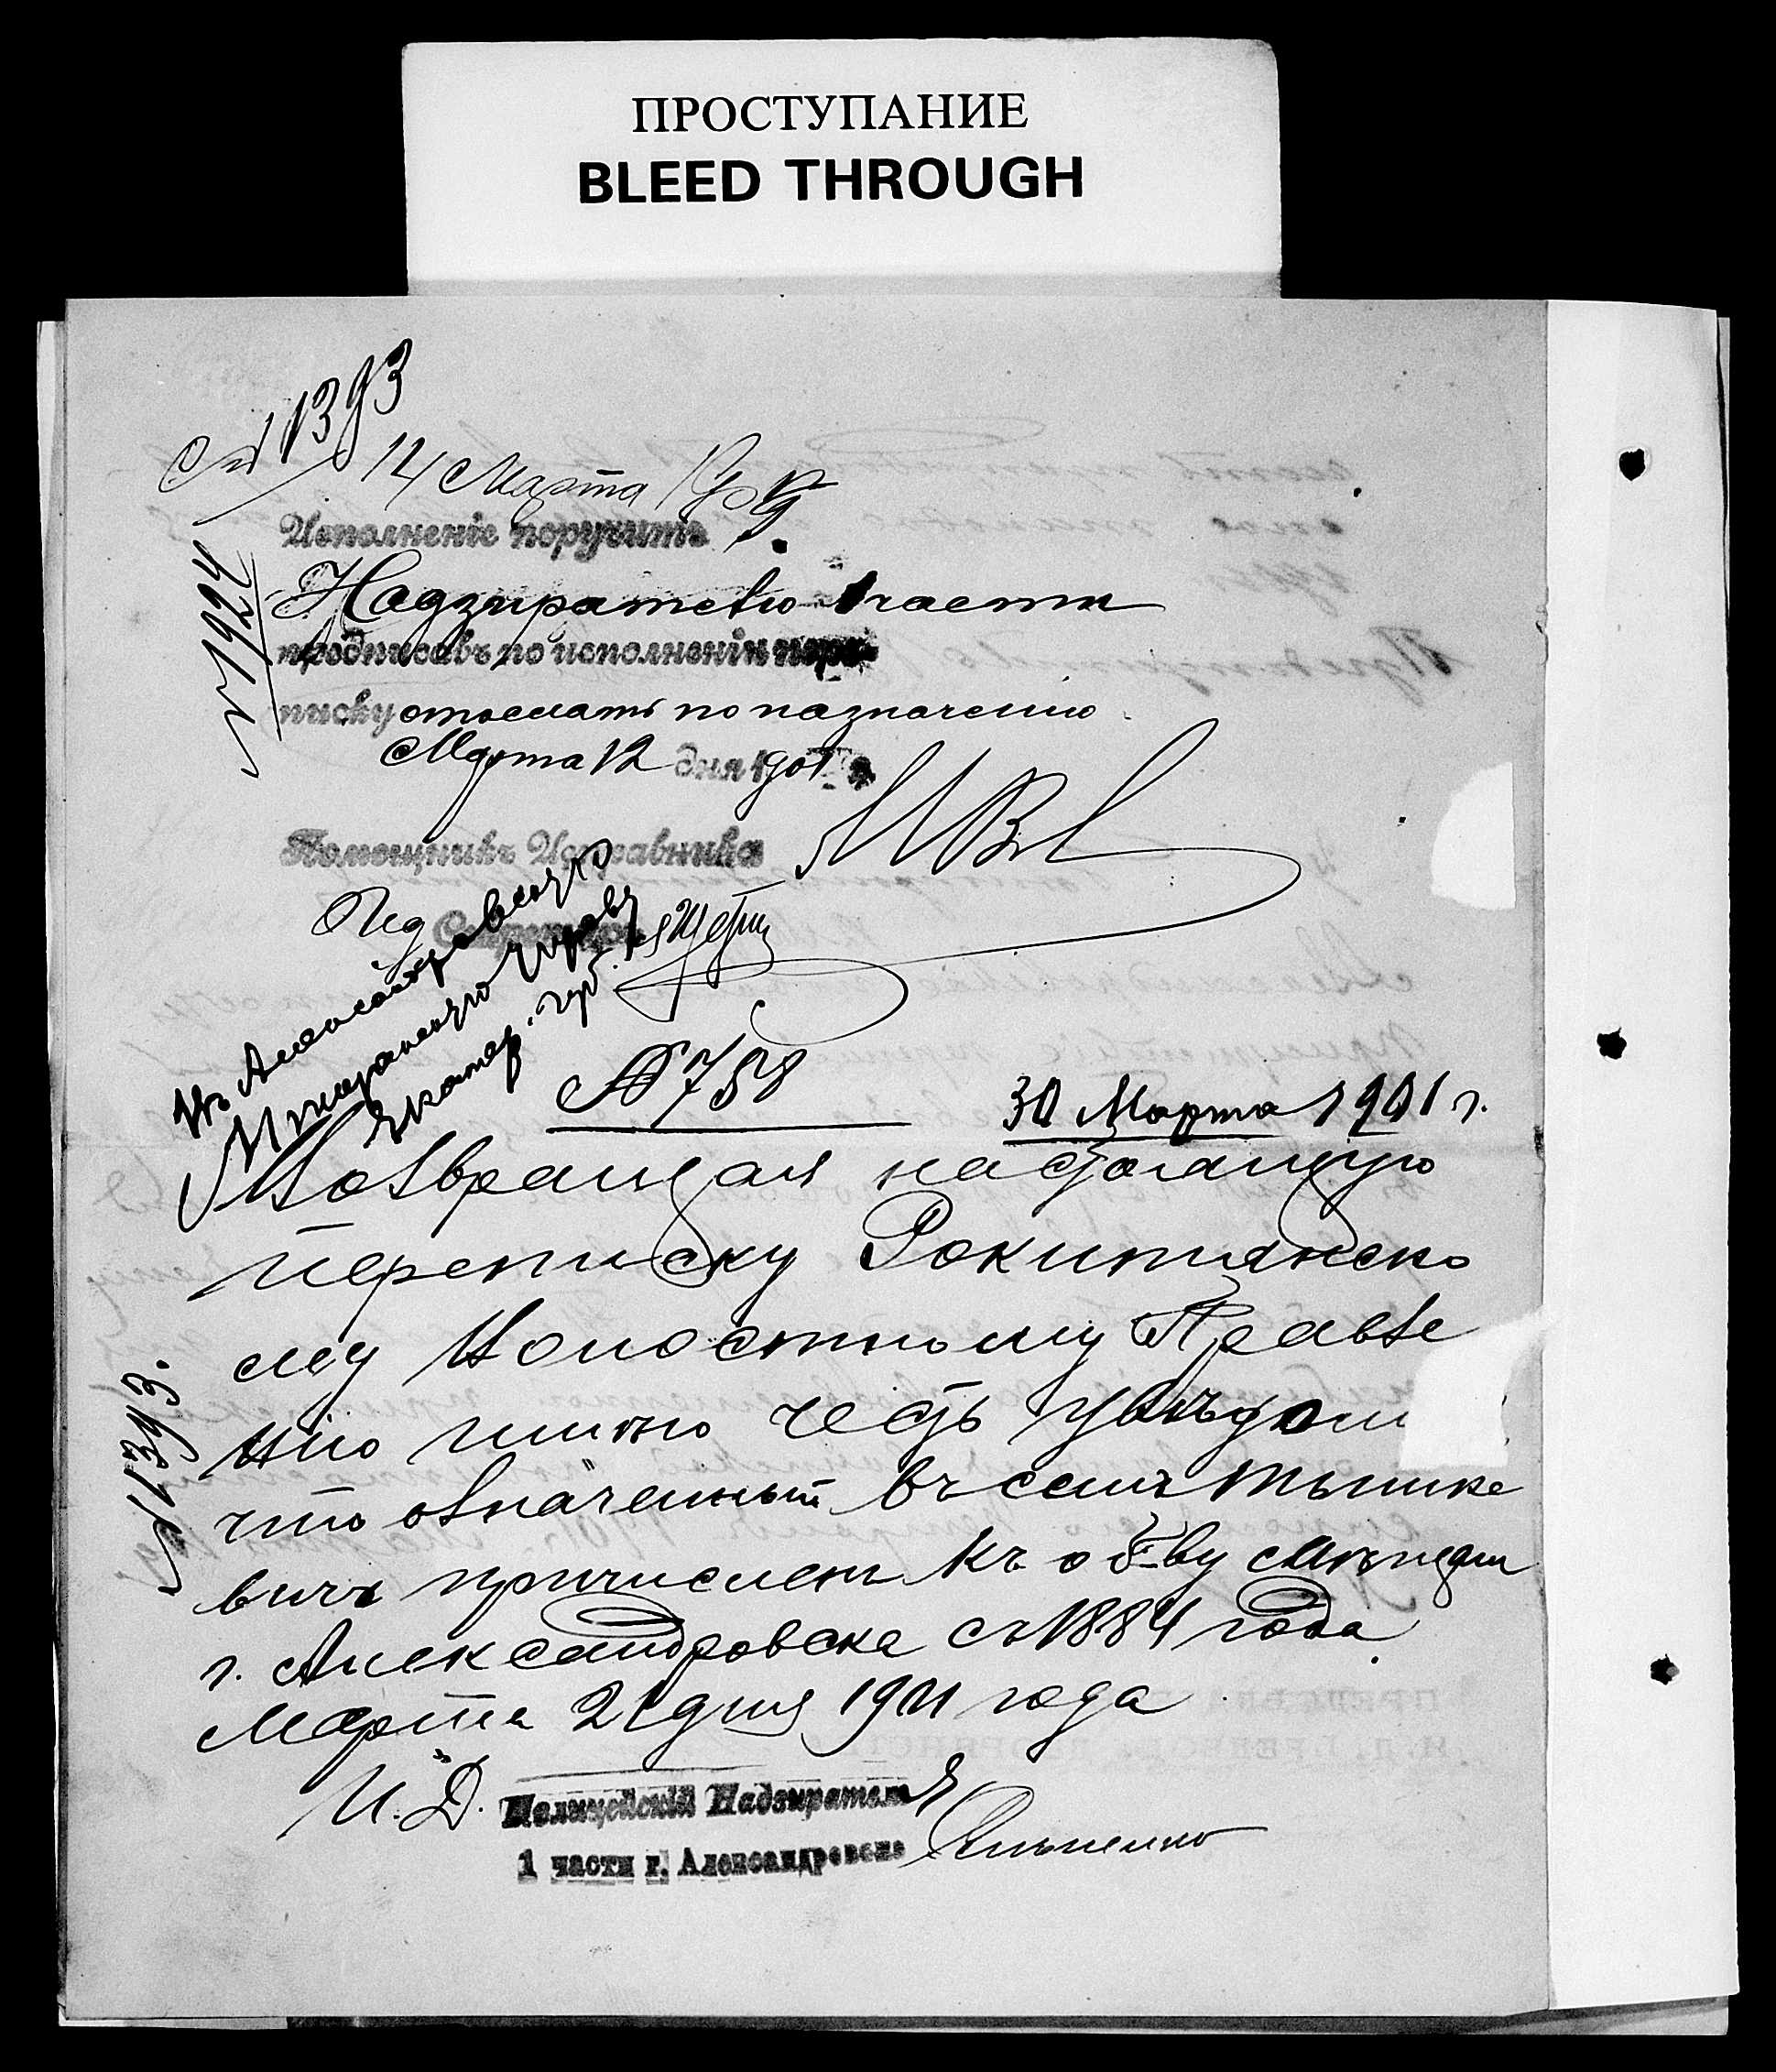 ПРОСТУПАНИЕ
BLEED THROUGH
№ 1393
14 Марта 1901 г.
№ 1924
Исполненіе поручить
Надзирателю 1 части
предписавъ по исполненіи пере-
писку отослать по назначенію
Марта 12 дня 1901 г.
Помощникъ Исправника
Секретарь
Въ Александровскую
Мещанскую Управу
Екатер. губ.
№ 758
30 Марта 1901 г.
Возвращая настоящую
переписку Рокитянско
му Волостному Правле
нію имѣю честь увѣдом
что означенный въ семъ
вичъ причисленъ къ об-ву мѣщан
г. Александровска съ 1884 года.
Марта 21 дня 1901 года
И. Д. Полицейскій Надзиратель
1 части г. Александровска
№ 1393.